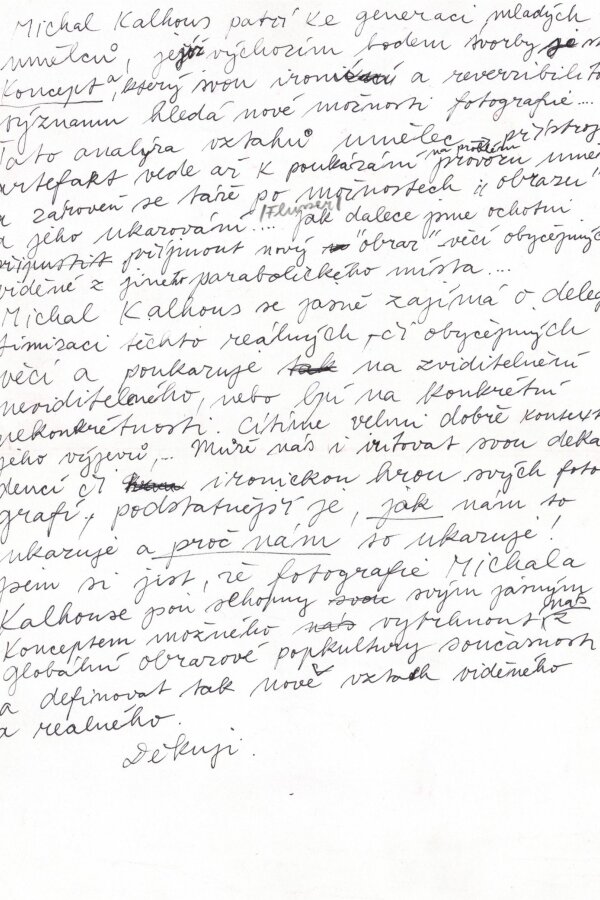 Michal Kalhous patří ke generaci mladých
umělců, jejíž výchozím bodem tvorby je
Koncept, který svou ironií a reverzibilitou
významu hledá nové možnosti fotografie....
Tato analýza vztahů umělec - přístroj
na problém
artefakt vede až k poukázání provozu umě
a zároveň se táže po možnostech „obrazu"
/Flusser/
a jeho ukazování.... jak dalece jsme ochotni
připustit přijmout nový "obraz" - věcí obyčejných
viděné z jiného parabolického místa....
Michal Kalhous se jasně zajímá o deleg
timizaci těchto reálných, či obyčejných
věcí a poukazuje tak na zviditelnění
neviditelného, nebo lpí na konkrétní
nekonkrétnosti. Cítíme velmi dobře kontext
jeho výjevů,... Může nás i iritovat svou deka
dencí či ironickou hrou svých foto
grafií, podstatnější je, jak nám to
ukazuje a proč nám to ukazuje!
Jsem si jist, že fotografie Michala
Kalhouse jsou schopny svou svým jasným
nás
Konceptem možného nás vytrhnout z
globální obrazové popkultury současnosti
a definovat tak nově vztah viděného
a reálného.
Děkuji.